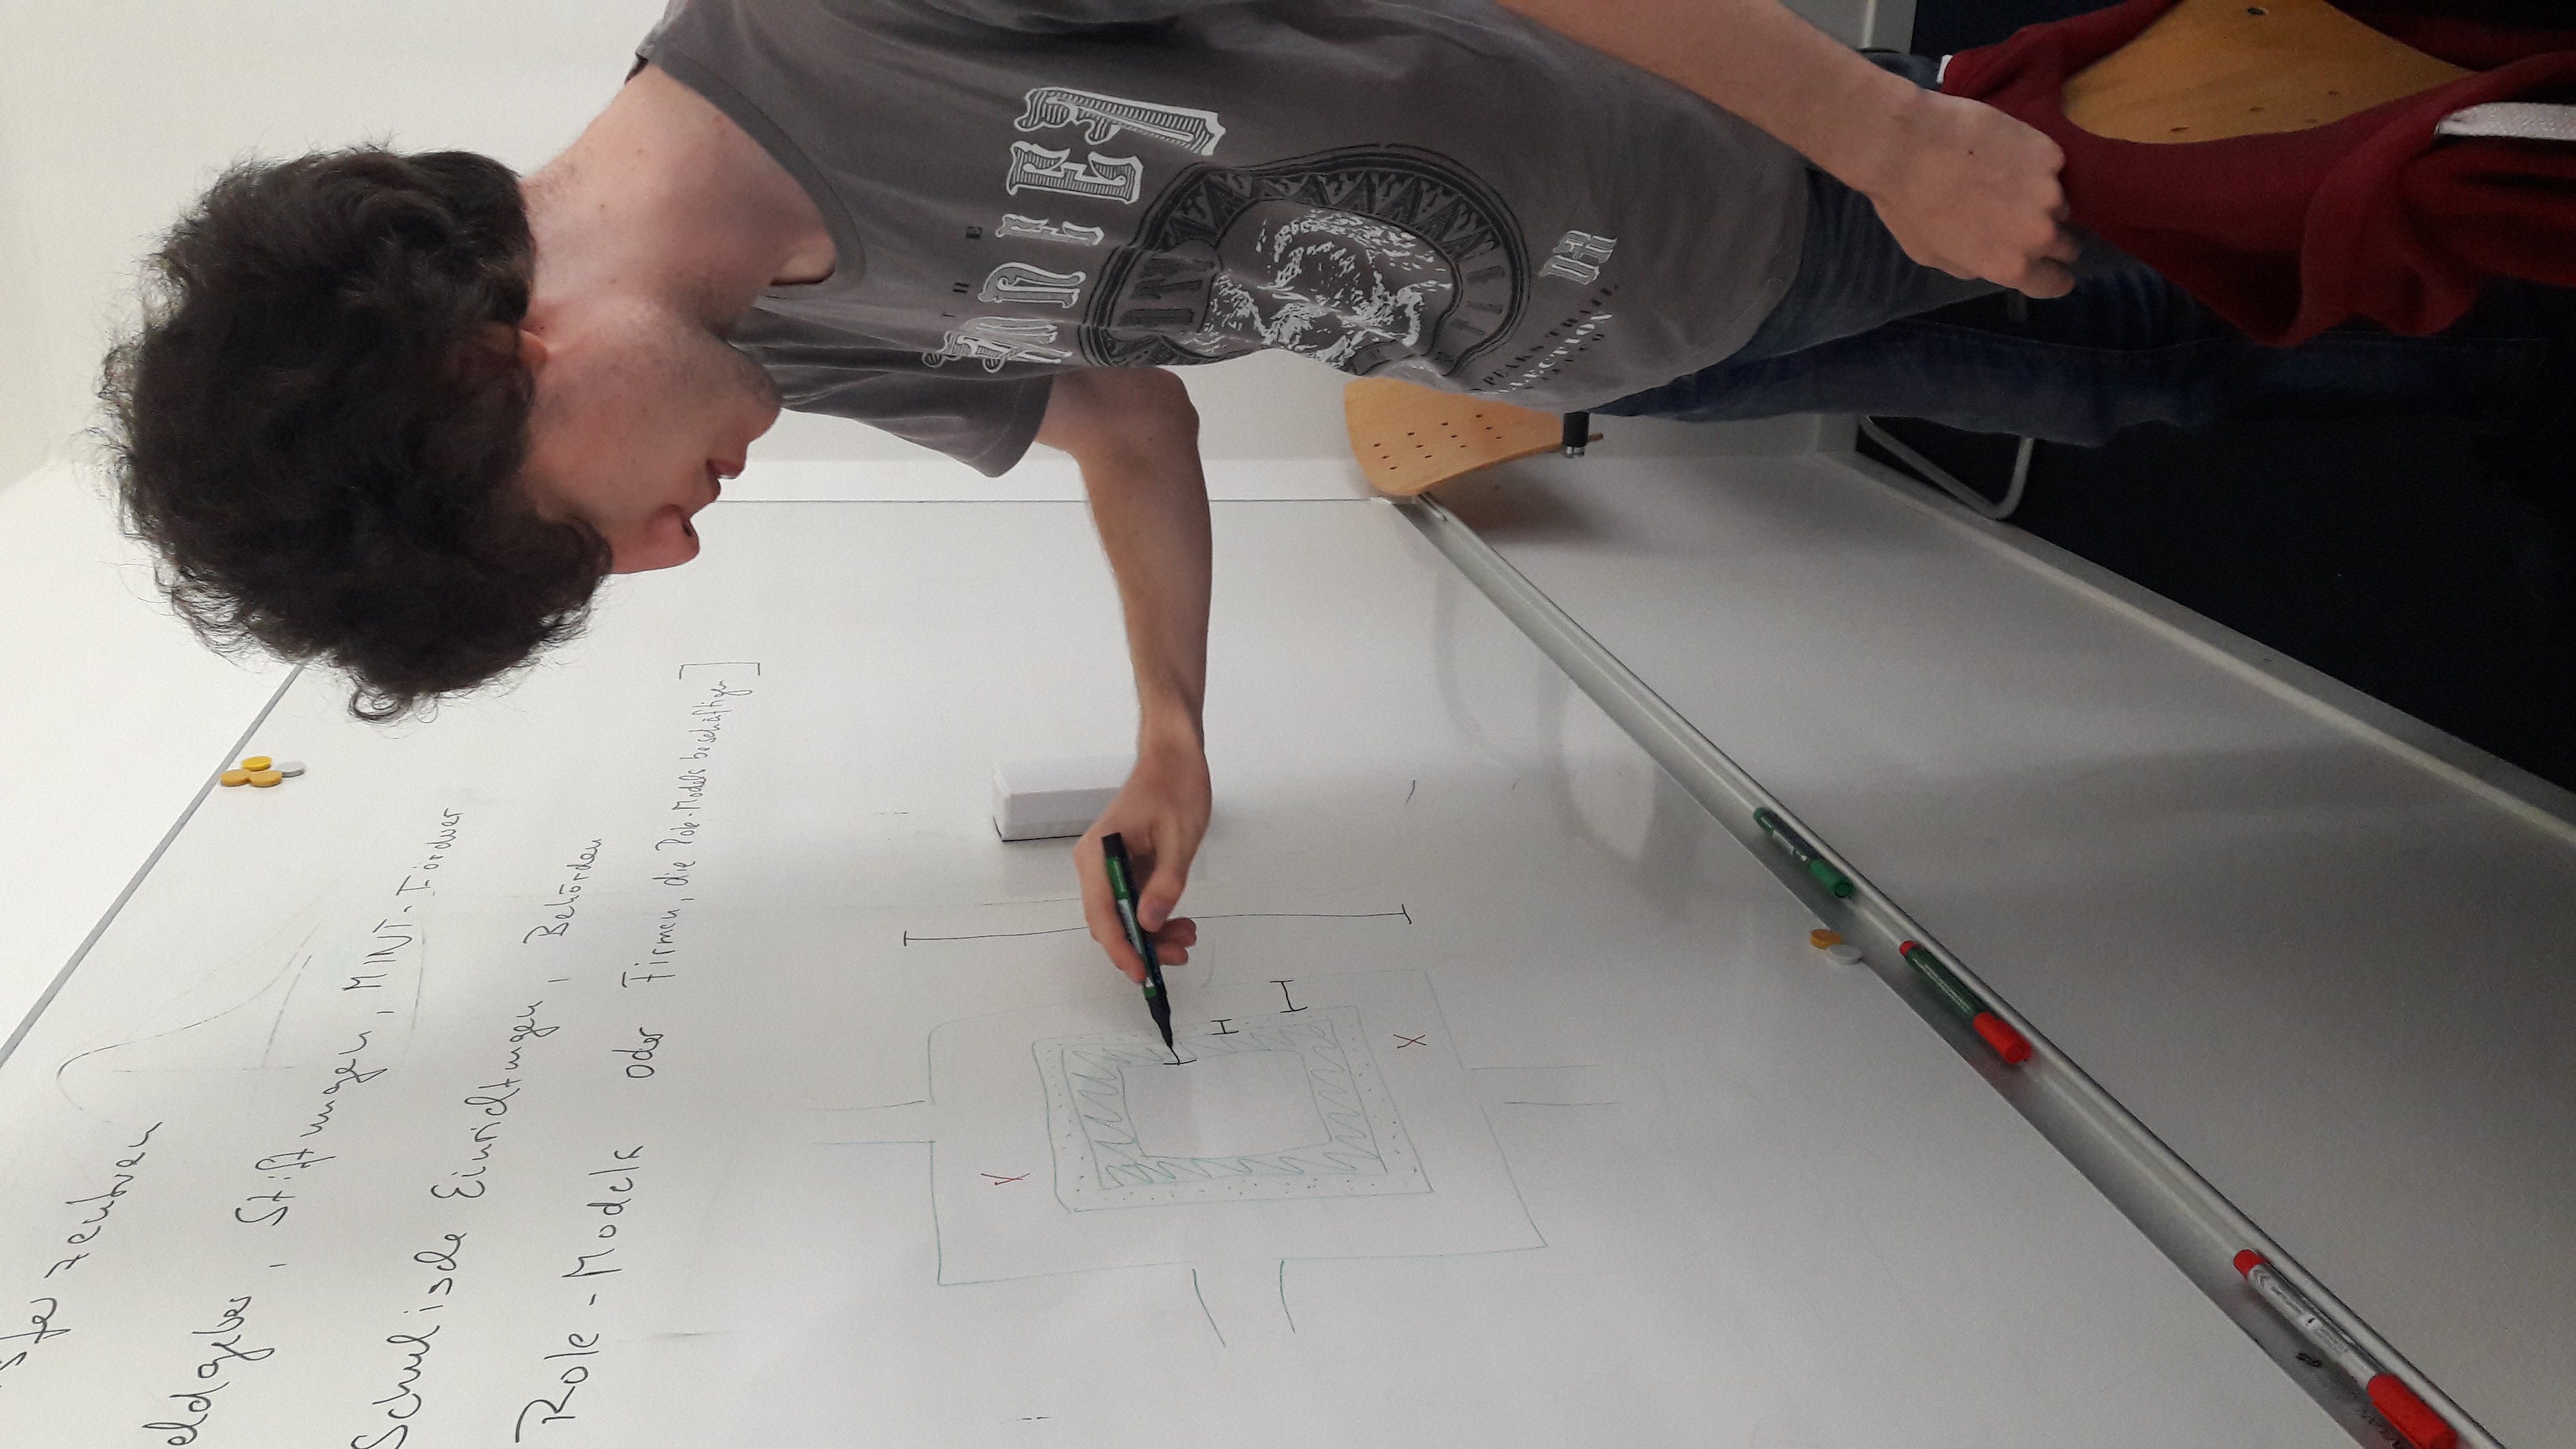 zentren
eldgeber, Stiftungen, MINT-Förderer
Schulische Einrichtungen, Behörden
Role-Models oder Firmen, die Role-Models beschäftigen]
X
X
THE
COLLECTION